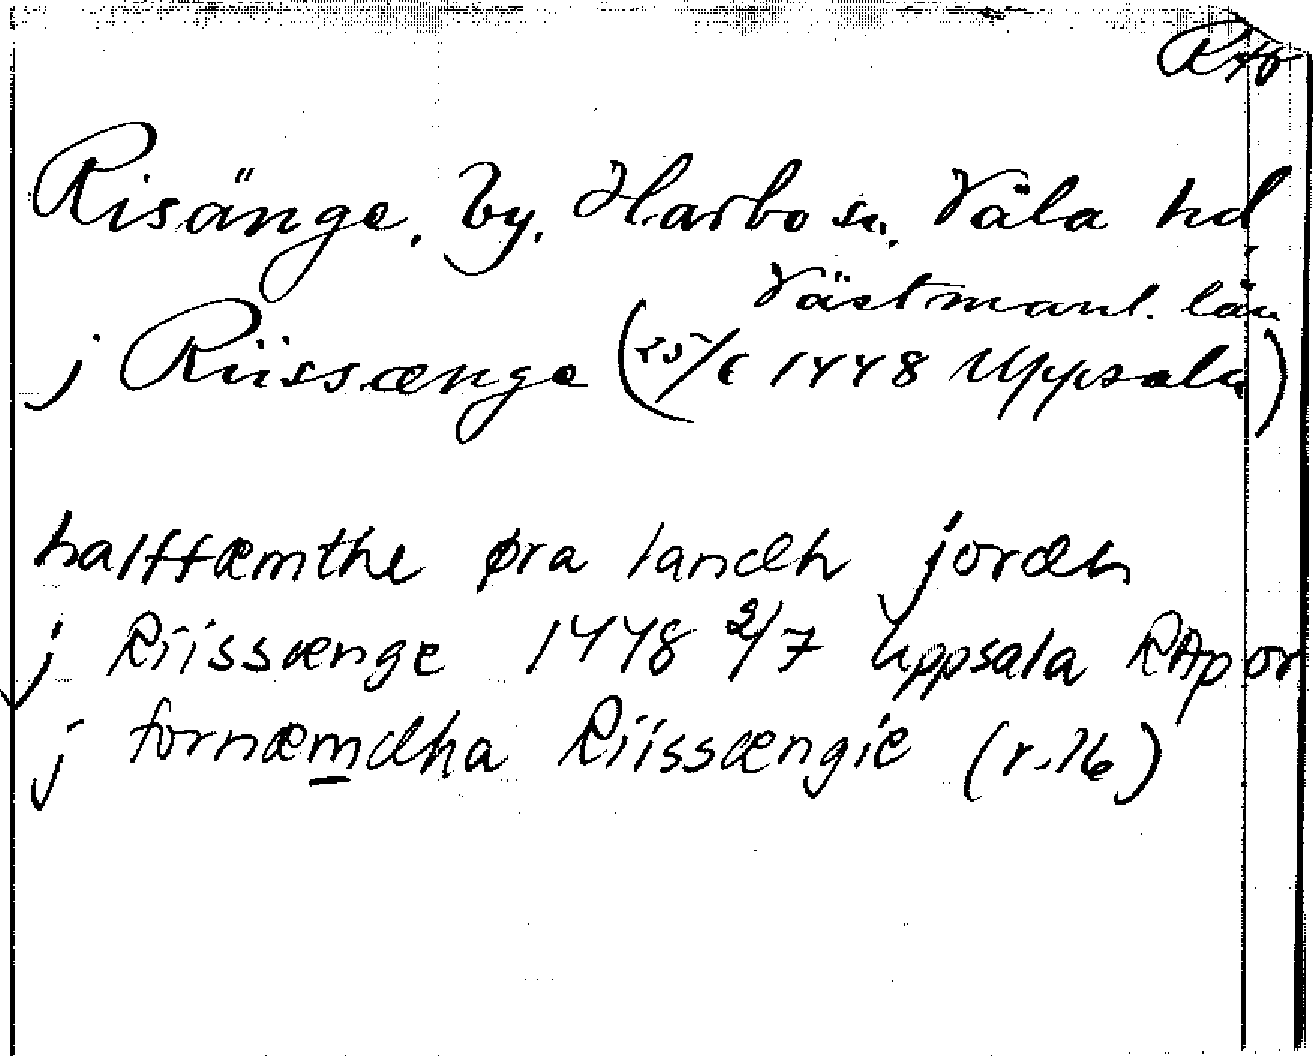 RAp
Risänge, by, Harbo sn, Våla hd,
Västmanl. län
j Riissænge (25/6 1448 Uppsala)
halffæmthe øra landh jordh
j Riissænge 1448 2/7 Uppsala RAp or
j fornæmdha Riissængie (r.16)